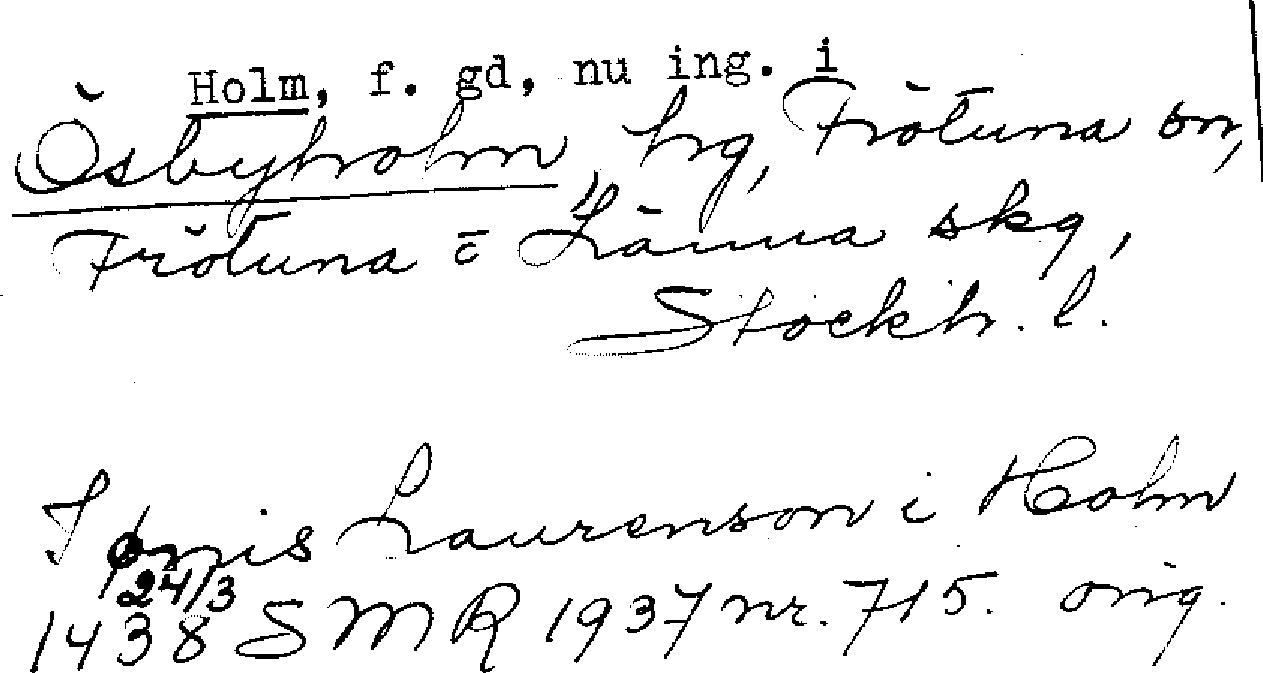 Holm, f. gd, nu ing. i
Ösbyholm, hg, Frötuna sn,
Frötuna o Länna skg,
Stockh. l.
Jønis Laurenson i Holm
1438 24/3 SMR 1937 nr. 715. orig.